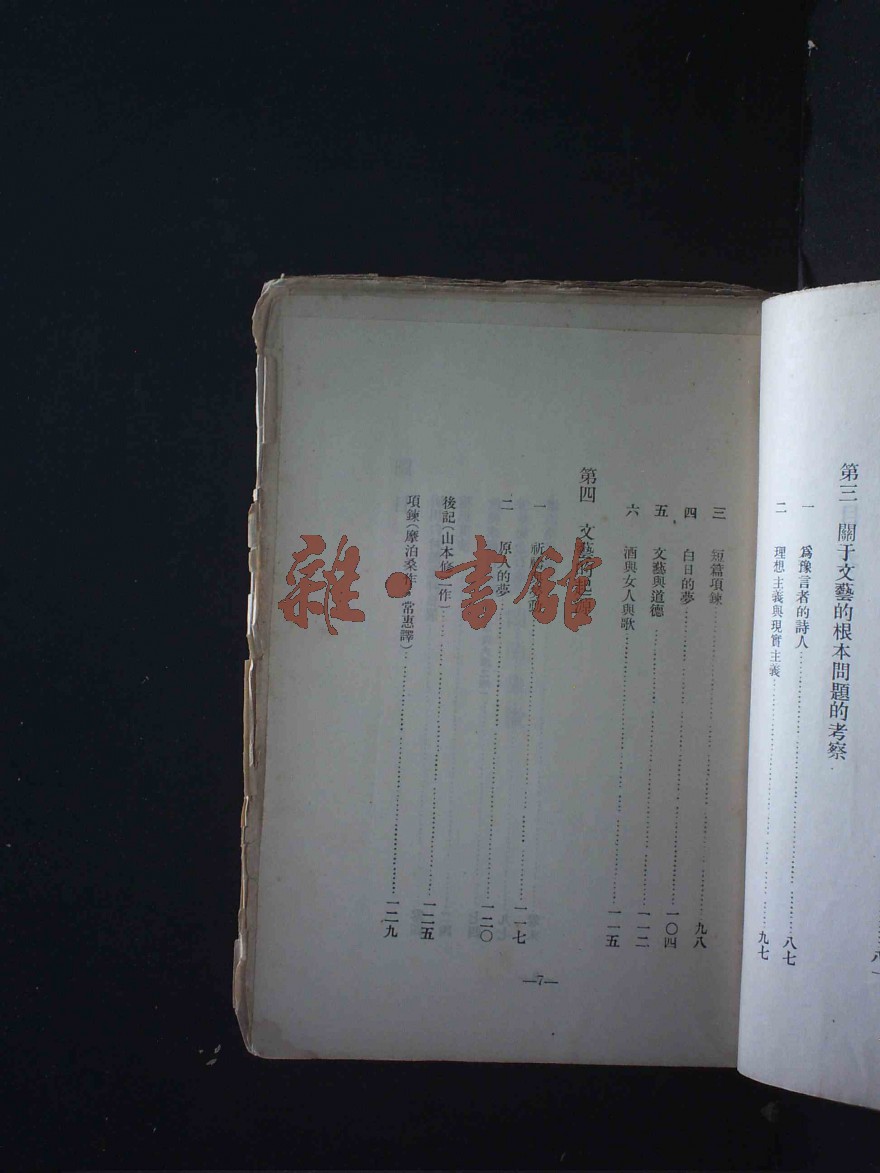 第三 關于文藝的根本問題的考察
一 爲豫言者的詩人……八七
二 理想主義與現實主義……九七
三 短篇項鍊……九八
四 白日的夢……一〇四
五 文藝與道德……一一二
六 酒與女人與歌……一一五
第四 文藝的起源
一 祈……一一七
二 原人的夢……一二〇
後記(山本修二作)……一二五
項鍊(摩泊桑作 常惠譯)……一二九
—7—
雜·書館